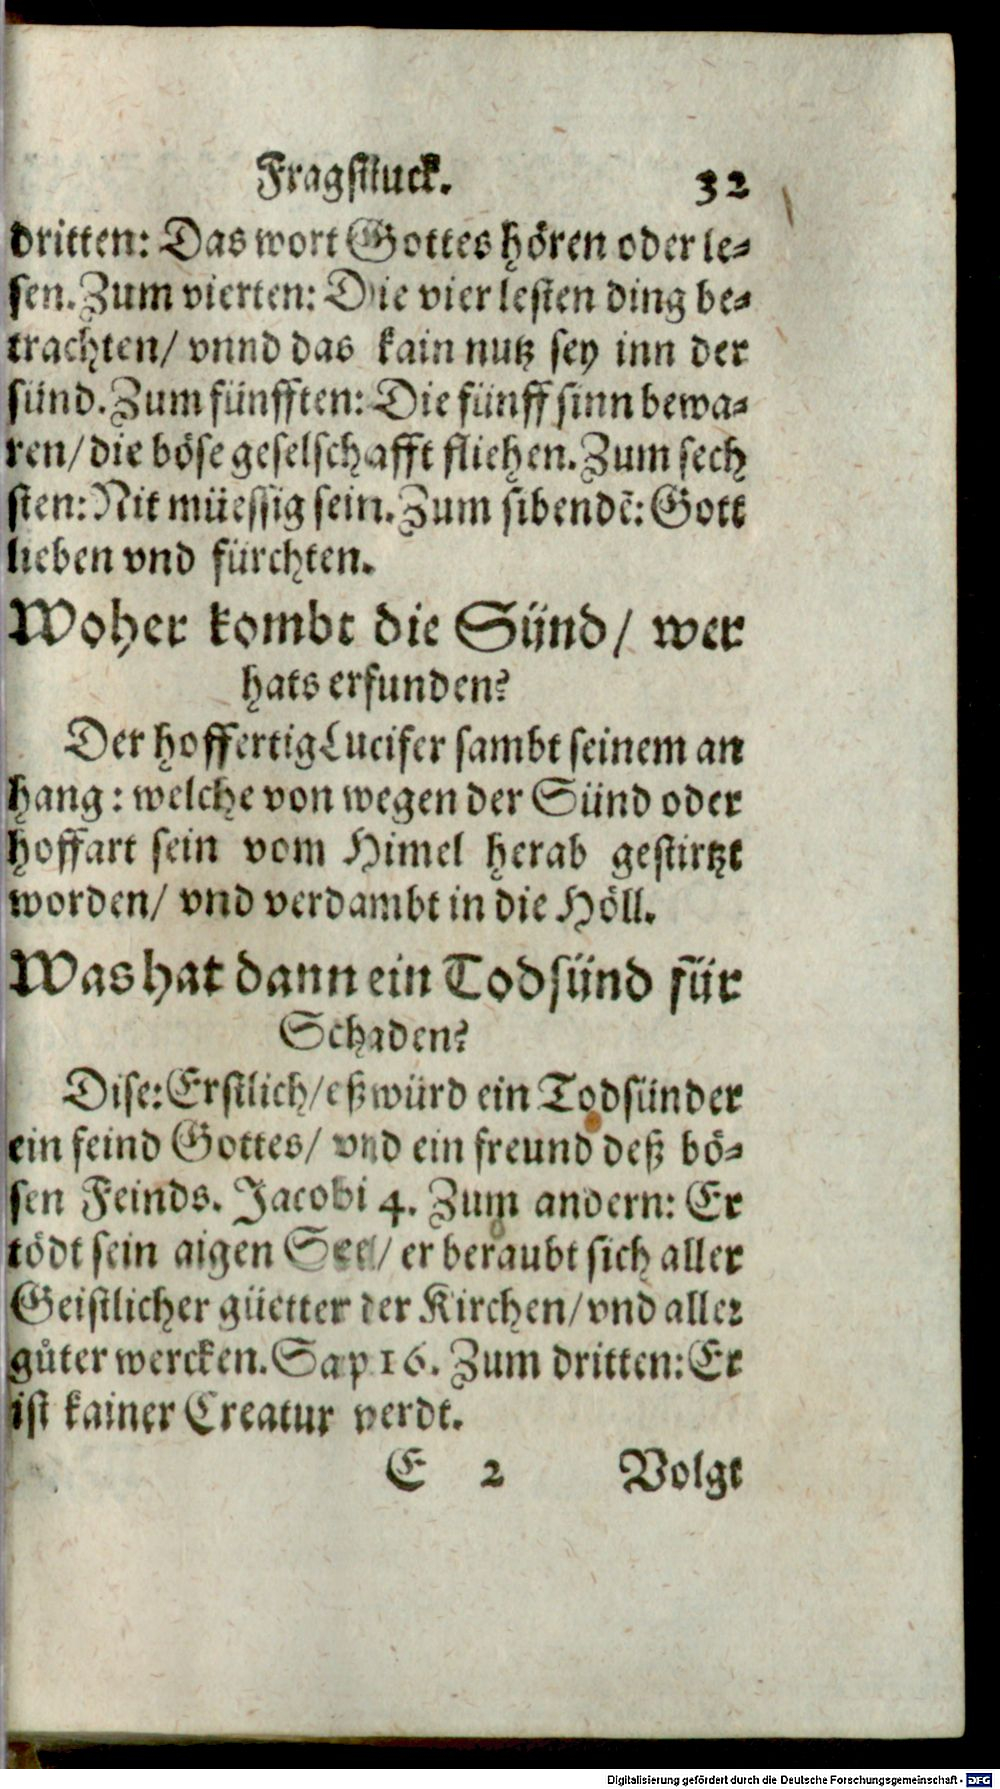 Fragstuck. 32
dritten: Das wort Gottes hören oder le-
sen. Zum vierten: Die vier lesten ding be-
trachten/ vnnd das kain nutz sey inn der
sünd. Zum fünfften: Die fünff sinn bewa-
ren/ die böse geselschafft fliehen. Zum sech
sten: Nit müessig sein. Zum sibendẽ: Gott
lieben vnd fürchten.
Woher kombt die Sünd/ wer
hats erfunden?
Der hoffertig Lucifer sambt seinem an
hang: welche von wegen der Sünd oder
hoffart sein vom Himel herab gestirtzt
worden/ vnd verdambt in die Höll.
Was hat dann ein Todsünd für
Schaden?
Dise: Erstlich/ eß würd ein Todsünder
ein feind Gottes/ vnd ein freund deß bö-
sen Feinds. Jacobi 4. Zum andern: Er
tödt sein aigen Seel/ er beraubt sich aller
Geistlicher güetter der Kirchen/ vnd aller
gůter wercken. Sap 16. Zum dritten: Er
ist kainer Creatur verdt.
E 2 Volgt
Digitalisierung gefördert durch die Deutsche Forschungsgemeinschaft - DFG